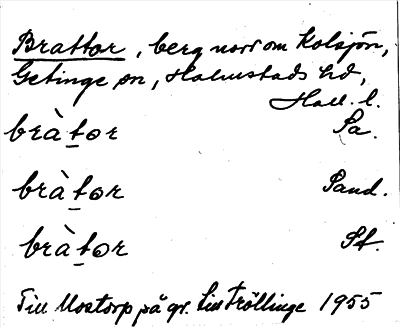 Brattor, berg norr om Kolsjön,
Getinge sn, Halmstads hd,
Hall. l.
bràt̲or Pa.
bràt̲or Sand.
bràt̲or St.
Till Mostorp på gr. till Fröllinge 1955